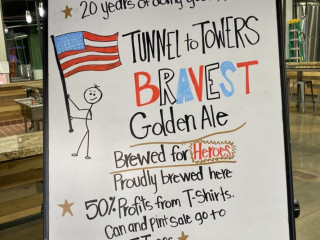 20 years of doing
TUNNEL to TOWERS
BRAVEST
Golden Ale
Brewed for Heroes
Proudly brewed here
50% Profits from T-Shirts.
Can and pint sale go to